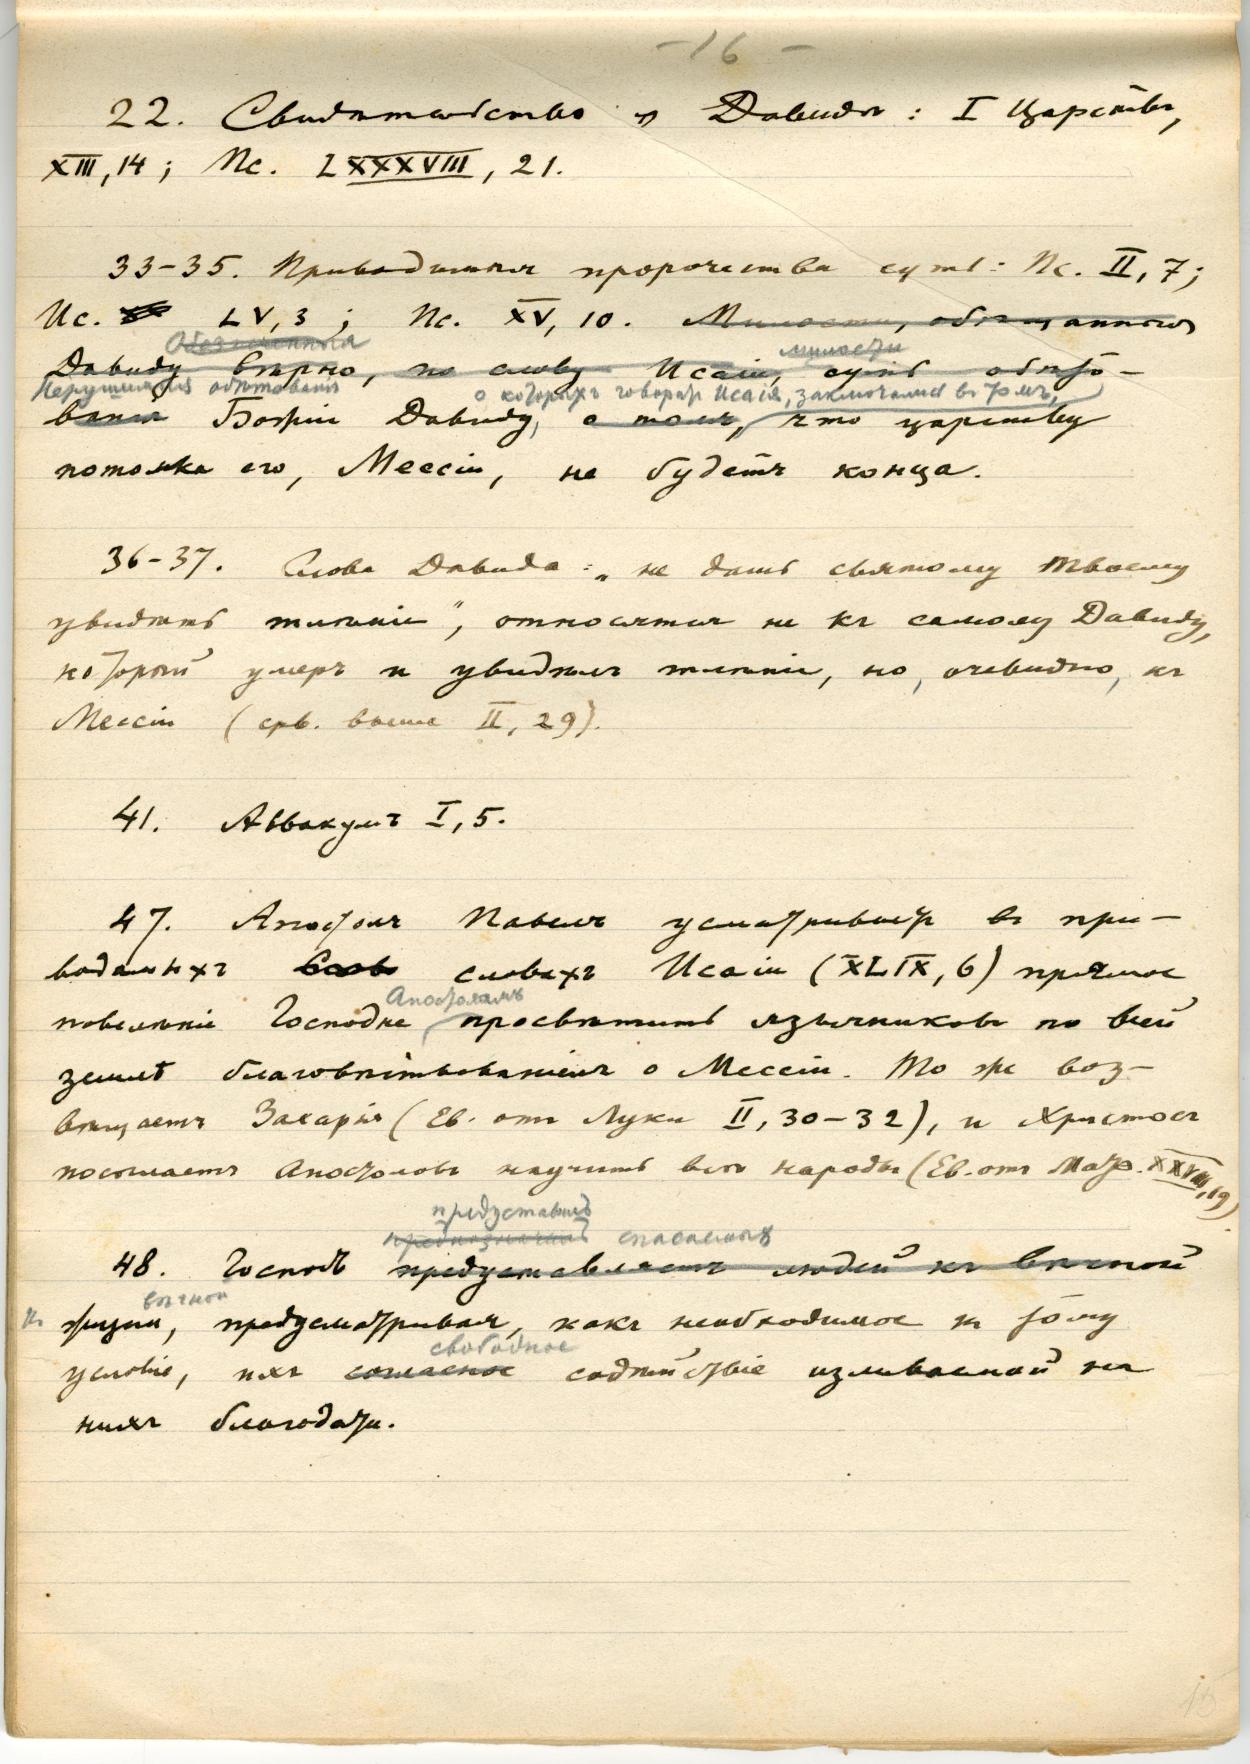 -16-
22. Свидѣтельство о Давидѣ: I Царствъ,
XIII, 14; Пс. LXXXVIII, 21.
33-35. Приводимыя пророчества суть: Пс. II, 7;
Ис. LV, 3; Пс. XV, 10. Милости, обѣщанныя
Обѣщанныя милости
Давиду вѣрно, по слову Исаіи, суть обѣто-
Нерушимыя обѣтованія о которыхъ говоритъ Исаія, заключались въ томъ,
ванія Божіи Давиду, о томъ, что царству
потомка его, Мессіи, не будетъ конца.
36-37. Слова Давида: „не дашь святому Твоему
увидѣть тлѣніе", относятся не къ самому Давиду,
который умеръ и увидѣлъ тлѣніе, но, очевидно, къ
Мессіи (срв. выше II, 29).
41. Аввакумъ I, 5.
47. Апостолъ Павелъ усматриваетъ въ при-
водимыхъ словахъ Исаіи (XLIX, 6) прямое
Апостоламъ
повелѣніе Господне просвѣтить язычниковъ по всей
землѣ благовѣтвованіемъ о Мессіи. То же воз-
вѣщаетъ Захарія (Ев. отъ Луки II, 30-32), и Христосъ
посылаетъ Апостоловъ научить всѣ народы (Ев. отъ Матѳ. XXVIII, 19).
предуставилъ
предназначилъ спасаемыхъ
48. Господь предуставляетъ людей къ вѣчной
вѣчной
къ жизни, предусматривая, какъ необходимое къ тому
свободное
условіе, ихъ согласное содѣйствіе изливаемой на
нихъ благодати.
15